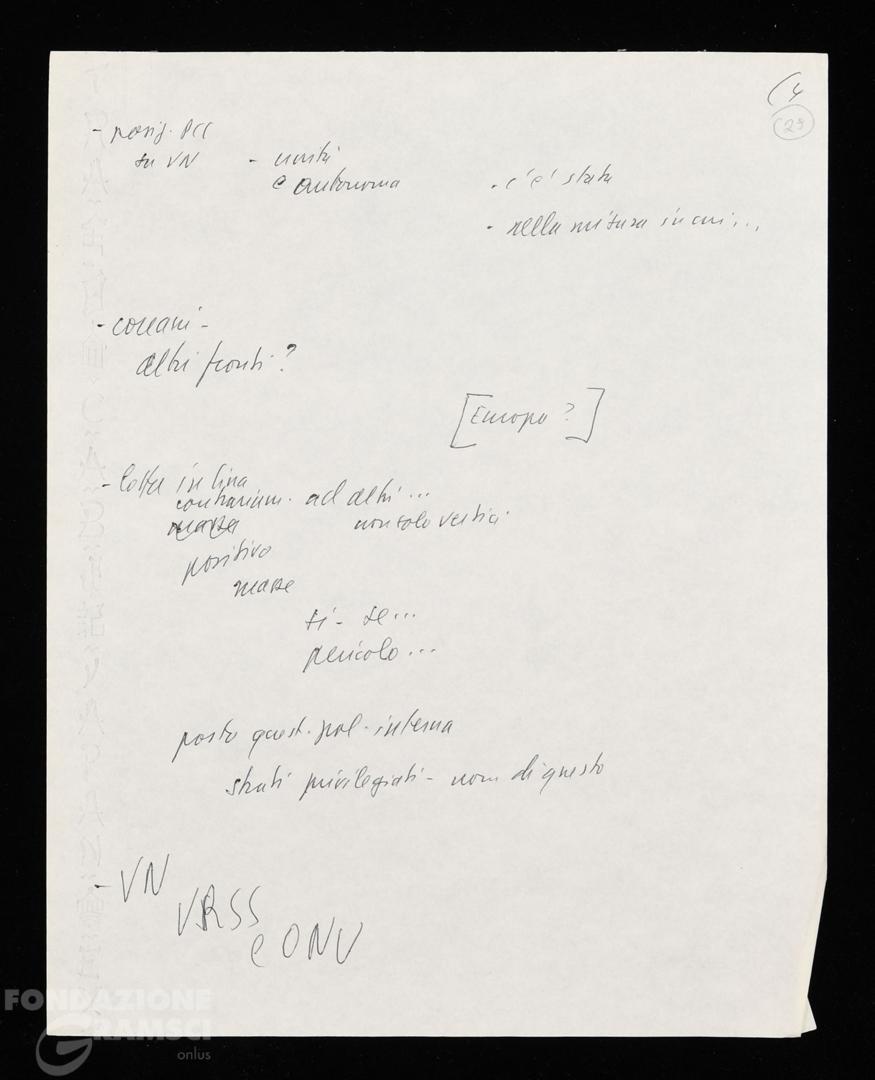 (4
(28)
- posiz. PCC
su VN - unità
e autonoma - c'è stata
- nella misura in cui...
- coreani -
altri fronti?
[Europa?]
- lotta in Cina
contrarium. ad altri...
masse non solo vertici
positivo
masse
si - se...
pericolo...
posto quest. pol. interna
strati privilegiati - nom di questo
- VN
URSS
e ONU
FONDAZIONE
GRAMSCI
onlus